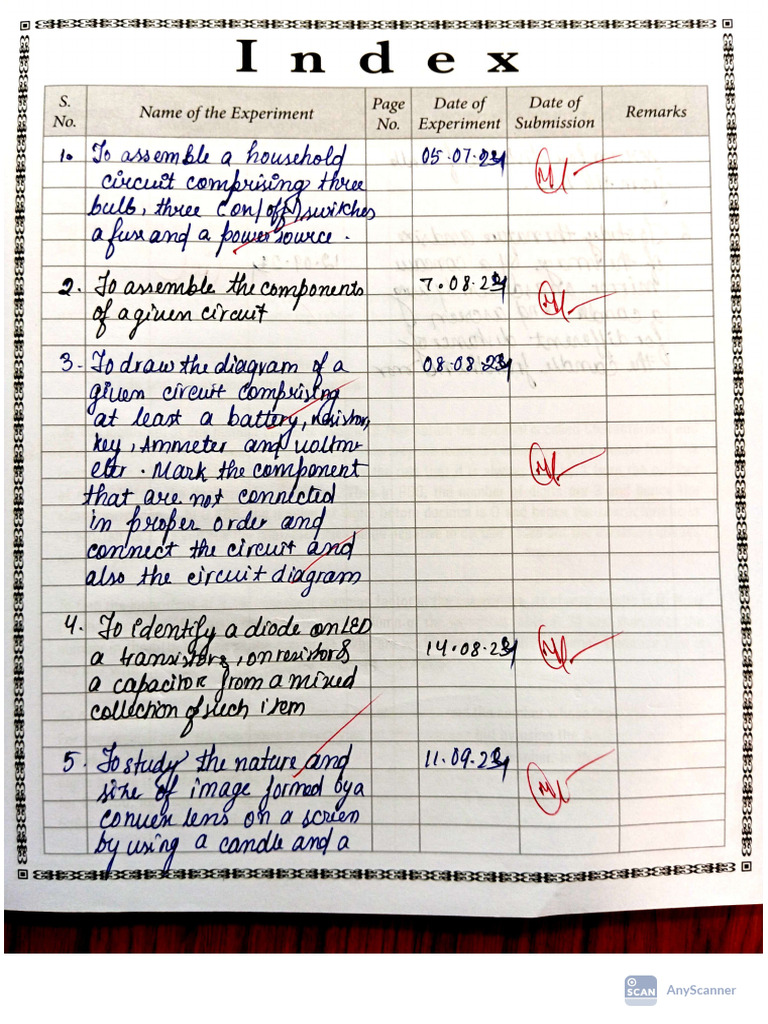 Index
S. No. Name of the Experiment Page No. Date of Experiment Date of Submission Remarks
1. To assemble a household 05.07.24
circuit comprising three
bulb, three (on/off) switches
a fuse and a power source.
2. To assemble the components 7.08.24
of a given circuit
3. To draw the diagram of a 08.08.24
given circuit comprising
at least a battery, resistor,
key, Ammeter and voltm-
eter. Mark the component
that are not connected
in proper order and
connect the circuit and
also the circuit diagram
4. To identify a diode an LED
a transistor, on resistor & 14.08.24
a capacitor from a mixed
collection of such item
5. To study the nature and 11.09.24
size of image formed by a
convex lens on a screen
by using a candle and a
SCAN AnyScanner